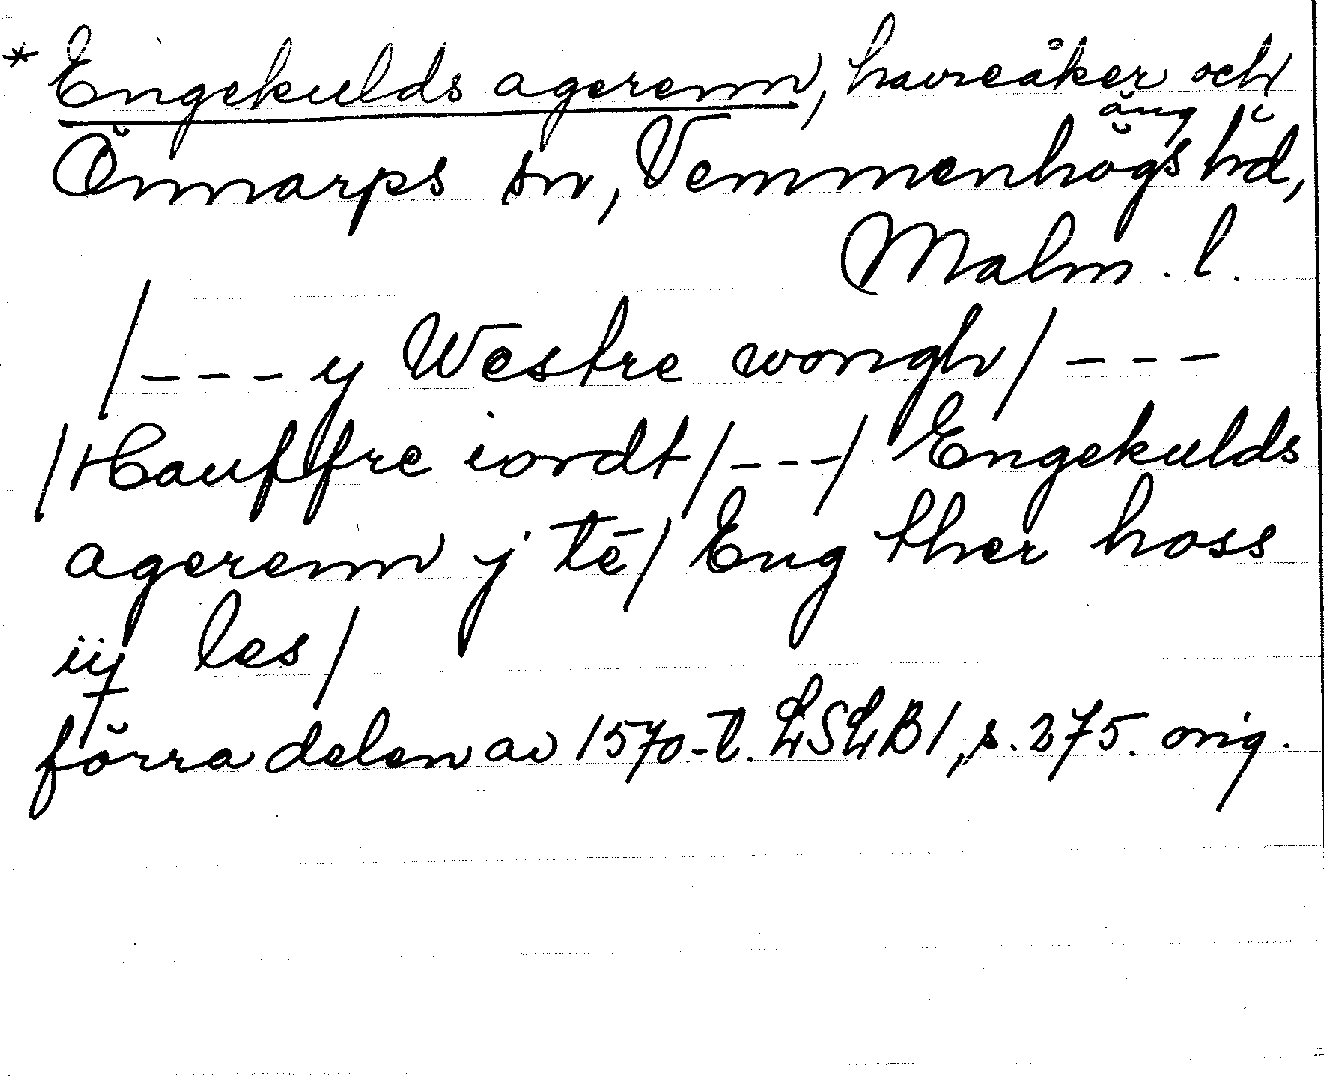 * Engekulds agerenn, havreåker och
äng
Önnarps sn, Vemmenhögs hd,
Malm. l.
/---y Westre wongh/---
/Hauffre iordt/---/Engekulds
agerenn j tē/Eng ther hoss
iij les/
förra delen av 1570-t. LSLB1, s. 275. orig.